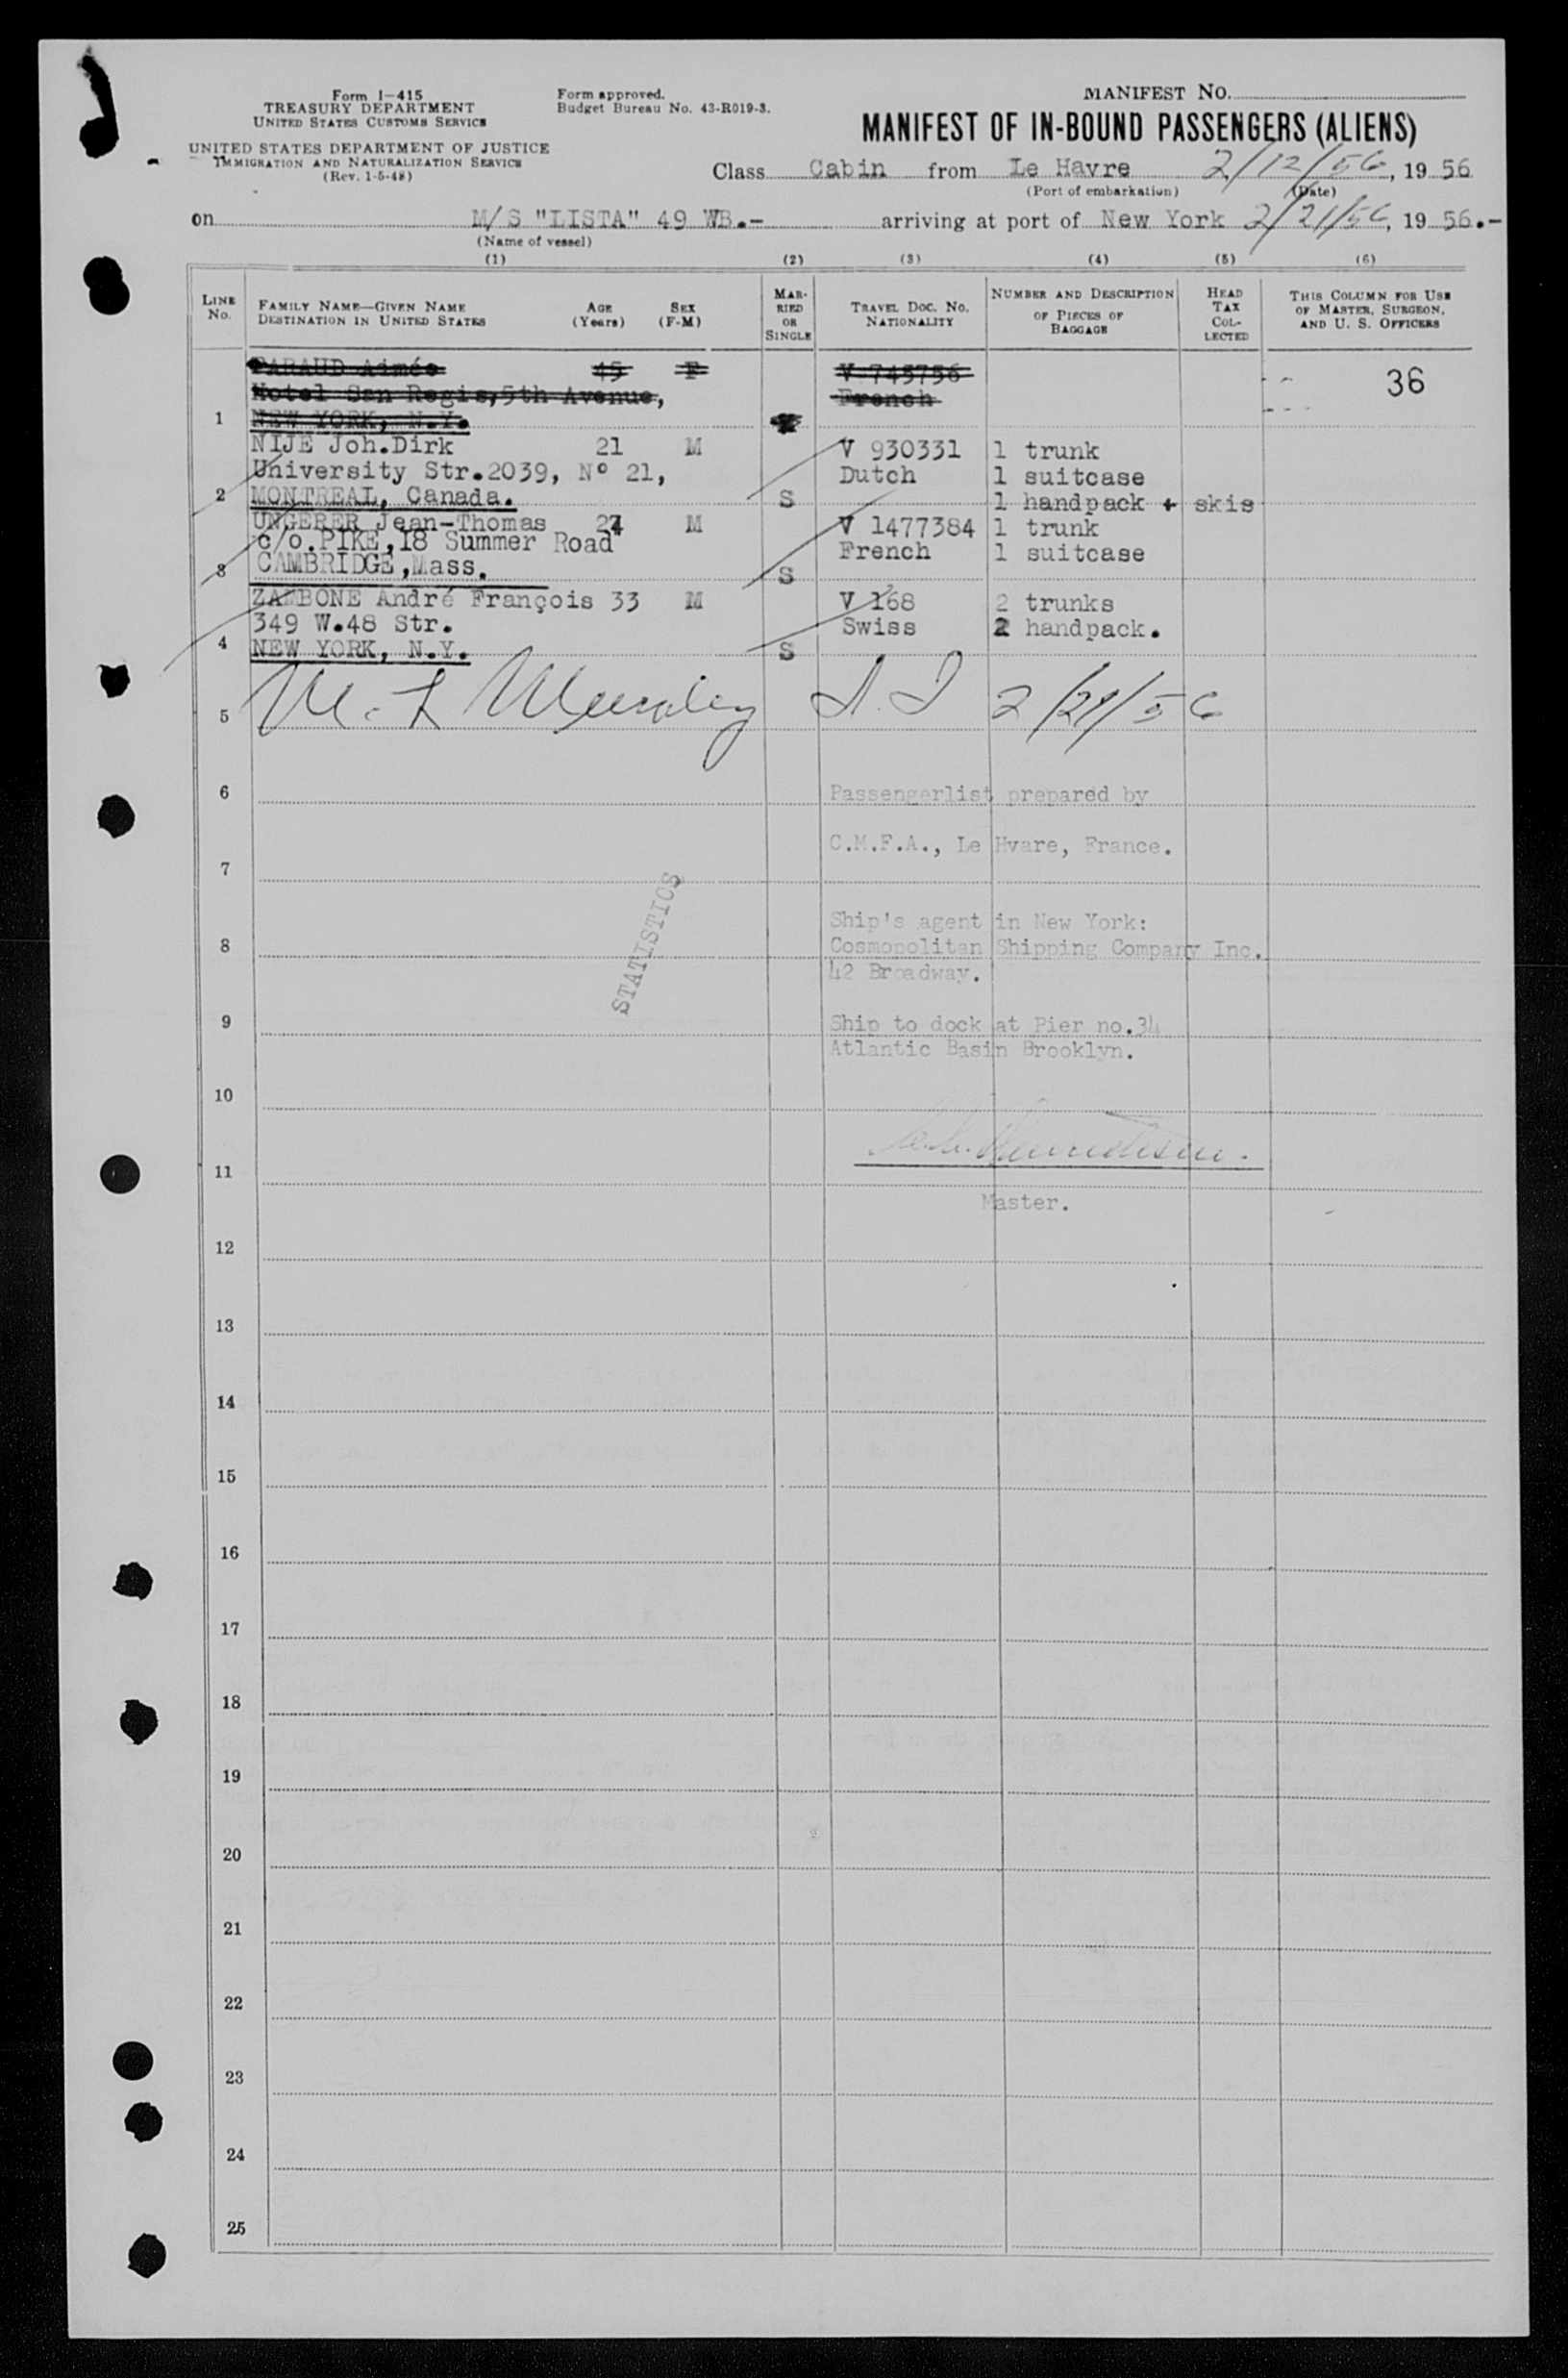 Form I-415
TREASURY DEPARTMENT
UNITED STATES CUSTOMS SERVICE
UNITED STATES DEPARTMENT OF JUSTICE
IMMIGRATION AND NATURALIZATION SERVICE
(Rev. 1-5-48)
Form approved.
Budget Bureau No. 43-R019-3.
MANIFEST NO.
MANIFEST OF IN-BOUND PASSENGERS (ALIENS)
Class Cabin from Le Havre 2/12/56, 19 56
(Port of embarkation) (Date)
on M/S "LISTA" 49 WB.- arriving at port of New York 2/21/56, 19 56.-
(Name of vessel)
(1) (2) (3) (4) (5) (6)
LINE No. FAMILY NAME—GIVEN NAME DESTINATION IN UNITED STATES AGE (Years) SEX (F-M) MARRIED OR SINGLE TRAVEL DOC. NO. NATIONALITY NUMBER AND DESCRIPTION OF PIECES OF BAGGAGE HEAD TAX COLLECTED THIS COLUMN FOR USE OF MASTER, SURGEON, AND U. S. OFFICERS
Aimée 45 F V 745756 36
Hotel San Regis, 5th Avenue, French
1 NEW YORK, N.Y.
NIJE Joh.Dirk 21 M V 930331 1 trunk
University Str.2039, N° 21, Dutch 1 suitcase
2 MONTREAL, Canada. S 1 handpack + skis
UNGERER Jean-Thomas 24 M V 1477384 1 trunk
c/o.PIKE,18 Summer Road French 1 suitcase
3 CAMBRIDGE,Mass. S
ZAMBONE André François 33 M V 168 2 trunks
349 W.48 Str. Swiss 2 handpack.
4 NEW YORK, N.Y. S
5 2/21/56
6 Passengerlist prepared by
C.M.F.A., Le Hvare, France.
7
Ship's agent in New York:
8 Cosmopolitan Shipping Company Inc.
42 Broadway.
STATISTICS
9 Ship to dock at Pier no.34
Atlantic Basin Brooklyn.
10
11
Master.
12
13
14
15
16
17
18
19
20
21
22
23
24
25